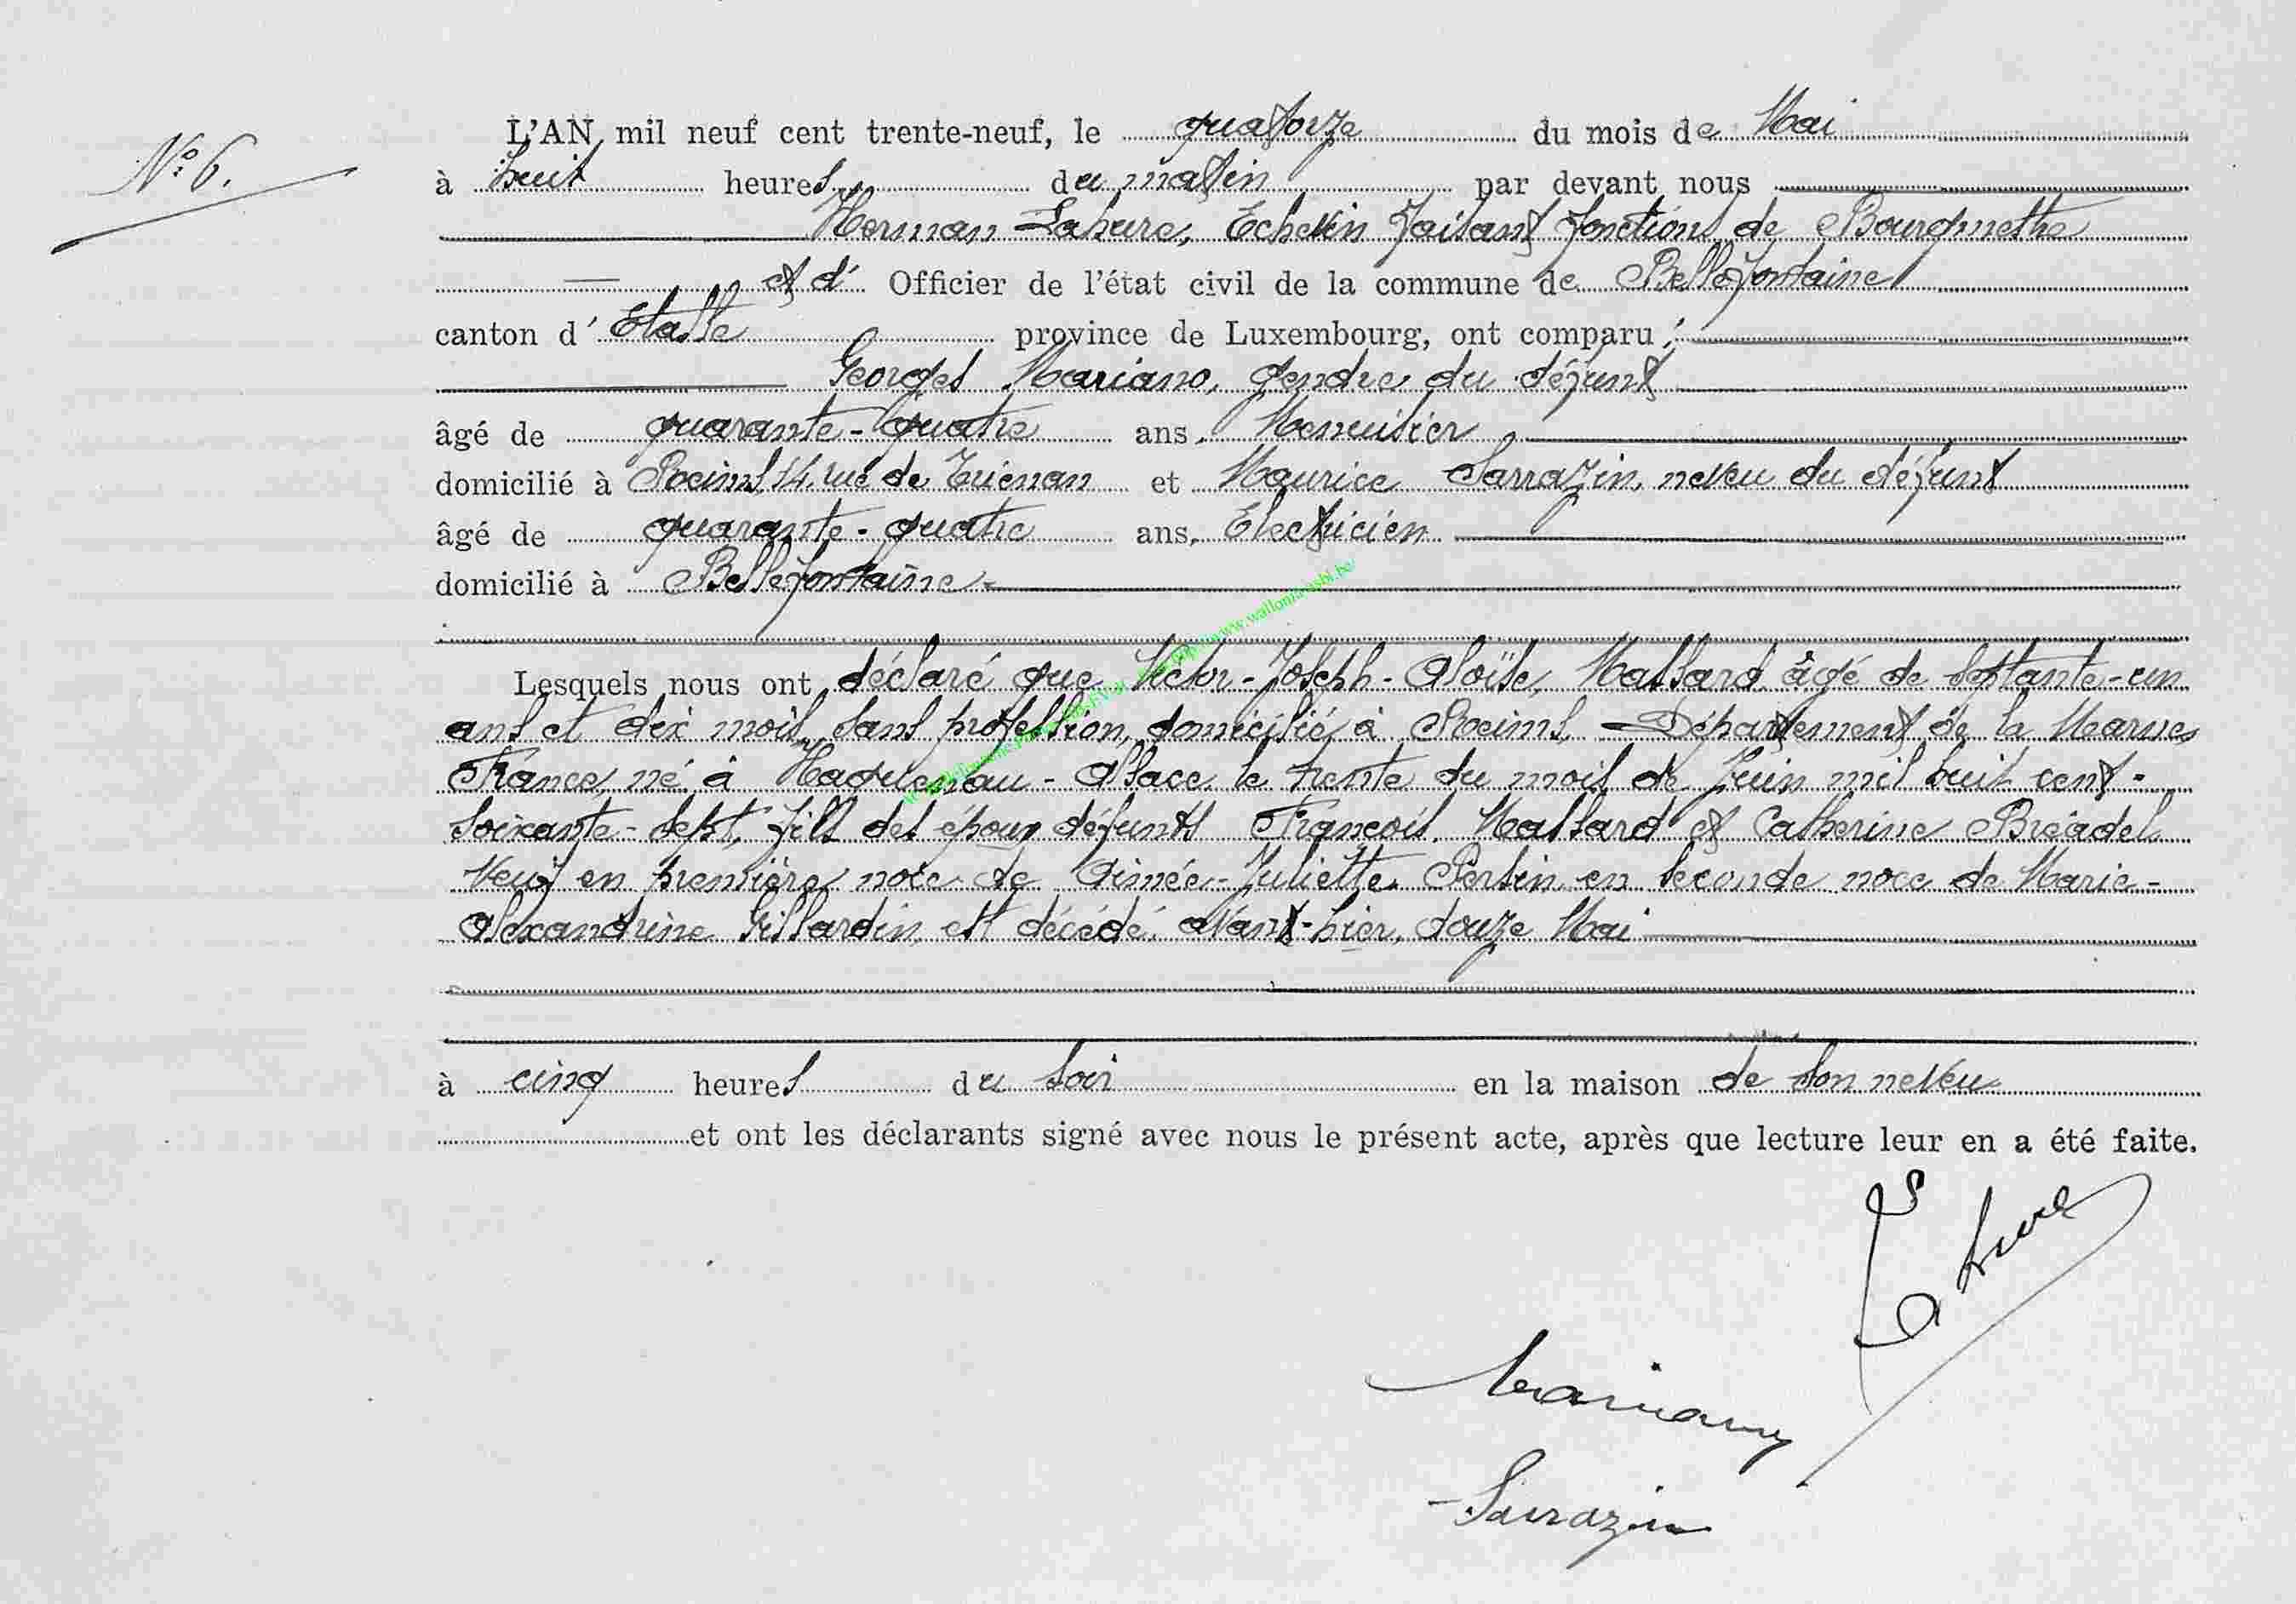 N° 6.
L'AN mil neuf cent trente-neuf, le quatorze du mois de Mai
à huit heures du matin par devant nous
Herman Lahure, Echevin faisant fonctions de Bourgmestre
et d' Officier de l'état civil de la commune de Bellefontaine
canton d' Etalle province de Luxembourg, ont comparu :
Georges Mariano, gendre du défunt
âgé de quarante-quatre ans, Menuisier
domicilié à Reims, 14, rue de et Maurice Sarrazin, neveu du défunt
âgé de quarante-quatre ans, Electricien
domicilié à Bellefontaine
Lesquels nous ont déclaré que Victor-Joseph-Aloïse, Massard âgé de septante-un
ans et dix mois, sans profession, domicilié à Reims, Département de la Marne
France, né à Haguenau - Alsace, le trente du mois de Juin mil huit cent-
soixante-sept, fils des époux défunts François Massard et Catherine Bréadel
Veuf en première noce de Aimée-Juliette Persin, en seconde noce de Marie-
Alexandrine Gillardin, est décédé, avant-hier, douze Mai
à cinq heures du soir en la maison de son neveu
et ont les déclarants signé avec nous le présent acte, après que lecture leur en a été faite.
Lahure
Sarrazin